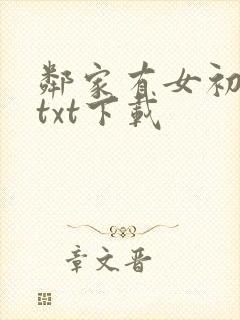 鄰家有女初
txt下載
章文晋